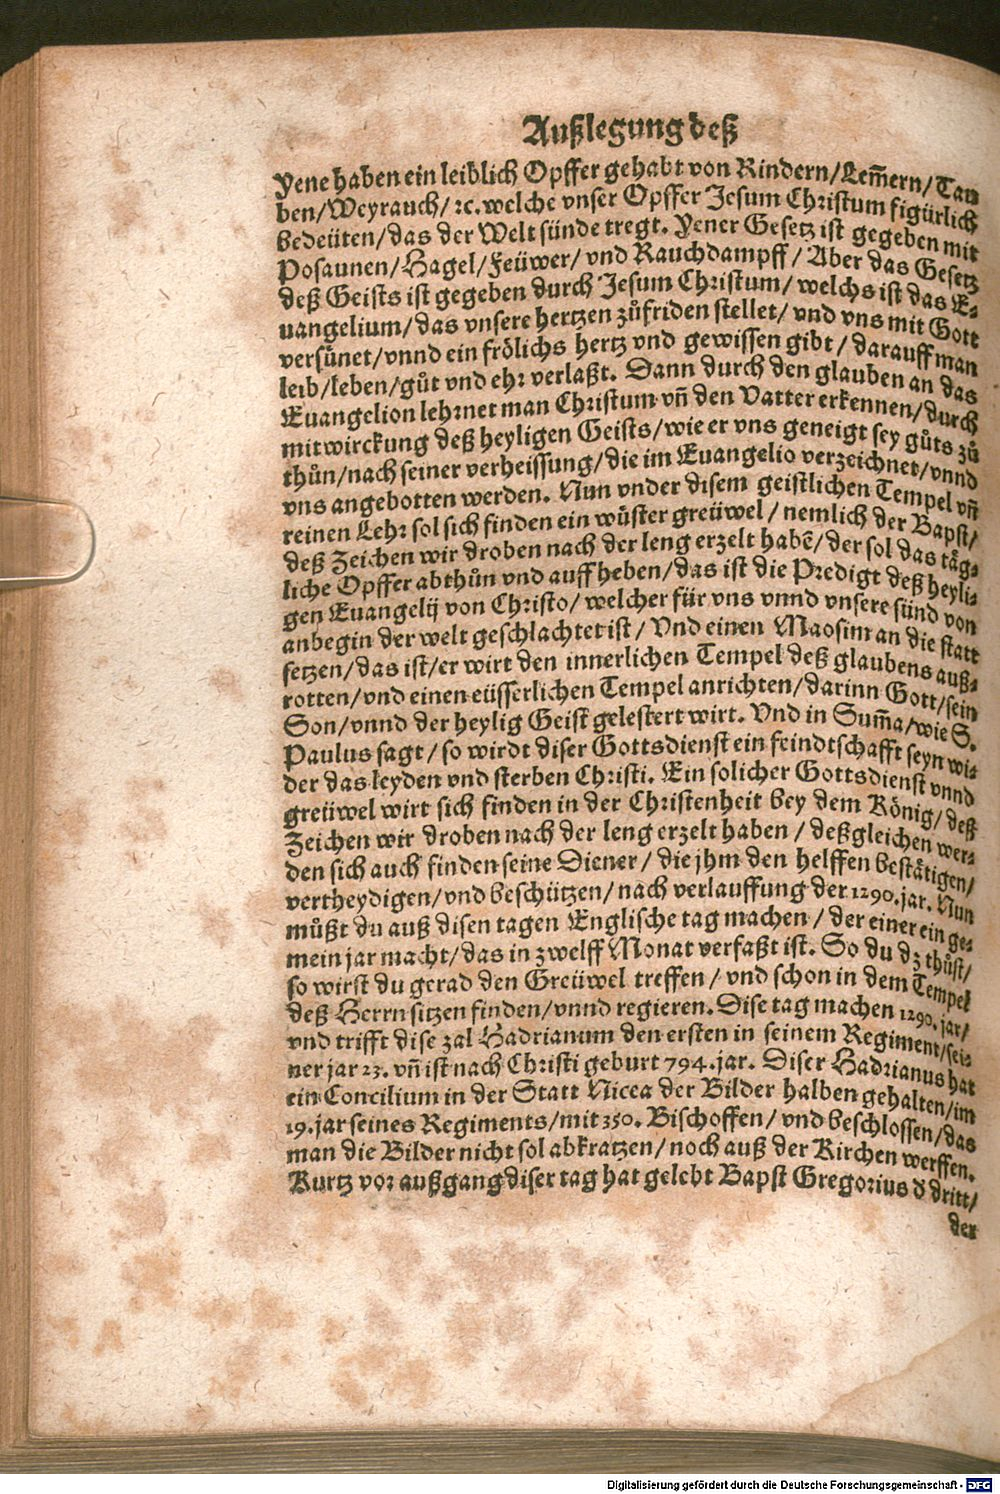 Außlegung deß
Yene haben ein leiblich Opffer gehabt von Rindern/Lem̃ern/Tau
ben/Weyrauch/ꝛc. welche vnser Opffer Jesum Christum figürlich
bedeüten/das der Welt sünde tregt. Yener Gesetz ist gegeben mit
Posaunen/Hagel/Feüwer/vnd Rauchdampff/Aber das Gesetz
deß Geists ist gegeben durch Jesum Christum/welchs ist das E⸗
uangelium/das vnsere hertzen zůfriden stellet/vnd vns mit Gott
versünet/vnnd ein frölichs hertz vnd gewissen gibt/darauff man
leib/leben/gůt vnd ehr verlaßt. Dann durch den glauben an das
Euangelion lehrnet man Christum vñ den Vatter erkennen/durch
mitwirckung deß heyligen Geists/wie er vns geneigt sey gůts zů
thůn/nach seiner verheissung/die im Euangelio verzeichnet/vnnd
vns angebotten werden. Nun vnder disem geistlichen Tempel vñ
reinen Lehr sol sich finden ein wüster greüwel/nemlich der Bapst/
deß Zeichen wir droben nach der leng erzelt habẽ/der sol das täg⸗
liche Opffer abthůn vnd auffheben/das ist die Predigt deß heyli⸗
gen Euangelij von Christo/welcher für vns vnnd vnsere sünd von
anbegin der welt geschlachtet ist/Vnd einen Maosim an die statt
setzen/das ist/er wirt den innerlichen Tempel deß glaubens auß⸗
rotten/vnd einen eüsserlichen Tempel anrichten/darinn Gott/sein
Son/vnnd der heylig Geist gelestert wirt. Vnd in Sum̃a/wie S.
Paulus sagt/so wirdt diser Gottsdienst ein feindtschafft seyn wi⸗
der das leyden vnd sterben Christi. Ein solicher Gottsdienst vnnd
greüwel wirt sich finden in der Christenheit bey dem König/deß
Zeichen wir droben nach der leng erzelt haben/deßgleichen wer⸗
den sich auch finden seine Diener/die jhm den helffen bestätigen/
vertheydigen/vnd beschützen/nach verlauffung der 1290. jar. Nun
můßt du auß disen tagen Englische tag machen/der einer ein ge⸗
mein jar macht/das in zwelff Monat verfaßt ist. So du dz thůst/
so wirst du gerad den Greüwel treffen/vnd schon in dem Tempel
deß Herrn sitzen finden/vnnd regieren. Dise tag machen 1290. jar/
vnd trifft dise zal Hadrianum den ersten in seinem Regiment/sei⸗
ner jar 23. vñ ist nach Christi geburt 794. jar. Diser Hadrianus hat
ein Concilium in der Statt Nicea der Bilder halben gehalten/im
19. jar seines Regiments/mit 350. Bischoffen/vnd beschlossen/das
man die Bilder nicht sol abkratzen/noch auß der Kirchen werffen.
Kurtz vor außgang diser tag hat gelebt Bapst Gregorius d̕ dritt/
der
Digitalisierung gefördert durch die Deutsche Forschungsgemeinschaft - DFG